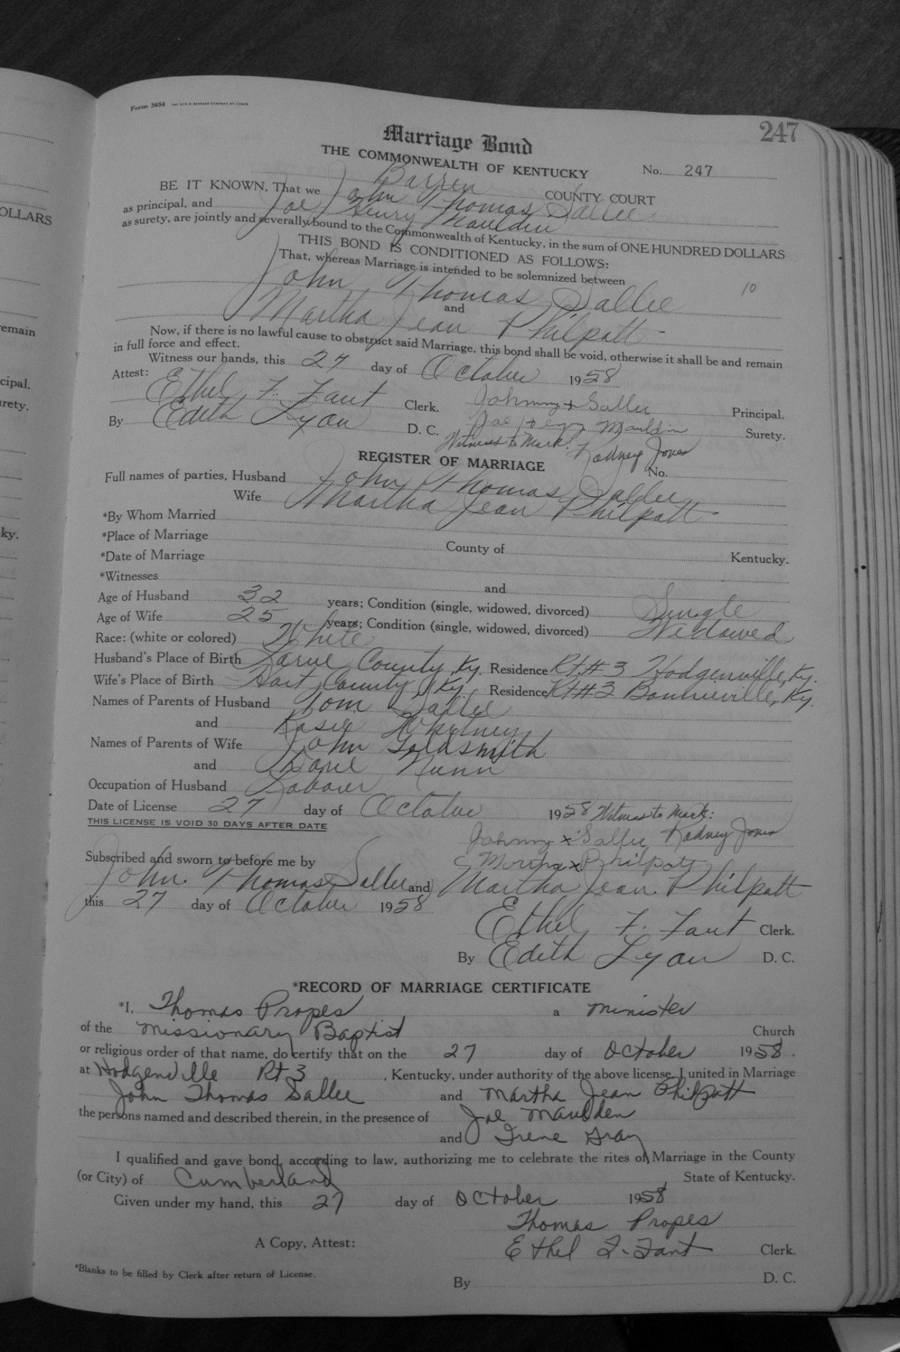 OLLARS
remain
cipal.
rety.
ky.
Form 2654
247
Marriage Bond
THE COMMONWEALTH OF KENTUCKY No. 247
Barren COUNTY COURT
BE IT KNOWN, That we John Thomas Sallee
as principal, and Joe Henry Mauldin
as surety, are jointly and severally bound to the Commonwealth of Kentucky, in the sum of ONE HUNDRED DOLLARS
THIS BOND IS CONDITIONED AS FOLLOWS:
That, whereas Marriage is intended to be solemnized between
John Thomas Sallee 10
and
Martha Jean Philpott
Now, if there is no lawful cause to obstruct said Marriage, this bond shall be void, otherwise it shall be and remain
in full force and effect.
Witness our hands, this 27 day of October 1958
Attest:
Ethel F. Fant Clerk. Johnny x Sallee Principal.
By Edith Lyau D. C. Joe Mauldin Surety.
Witness to Mark: Rodney Jones
REGISTER OF MARRIAGE No.
Full names of parties, Husband John Thomas Sallee
Wife Martha Jean Philpott
*By Whom Married
*Place of Marriage County of Kentucky.
*Date of Marriage
*Witnesses and
Age of Husband 32 years; Condition (single, widowed, divorced) Single
Age of Wife 25 years; Condition (single, widowed, divorced) Widowed
Race: (white or colored) White
Husband's Place of Birth Larue County, Ky. Residence Rt #3 Hodgenville, Ky.
Wife's Place of Birth Hart County, Ky. Residence Rt #2 Bonnieville, Ky.
Names of Parents of Husband Tom Sallee
and Rosie
Names of Parents of Wife John Goldsmith
and Nunn
Occupation of Husband Laborer
Date of License 27 day of October 1958 Witness to Mark:
THIS LICENSE IS VOID 30 DAYS AFTER DATE
Johnny x Sallee Rodney Jones
Subscribed and sworn to before me by x Philpott
John Thomas Sallee and Martha Jean Philpott
this 27 day of October 1958
Ethel F. Fant Clerk.
By Edith Lyau D. C.
*RECORD OF MARRIAGE CERTIFICATE
*I, Thomas Propes a minister
of the missionary Baptist Church
or religious order of that name, do certify that on the 27 day of October 1958.
at Hodgenville Rt 3, Kentucky, under authority of the above license, I united in Marriage
John Thomas Sallee and Martha Jean Philpott
the persons named and described therein, in the presence of Joe Maulden
and Irene Gray
I qualified and gave bond, according to law, authorizing me to celebrate the rites of Marriage in the County
(or City) of Cumberland State of Kentucky.
Given under my hand, this 27 day of October 1958
Thomas Propes
A Copy, Attest: Ethel F. Fant Clerk.
*Blanks to be filled by Clerk after return of License.
By D. C.